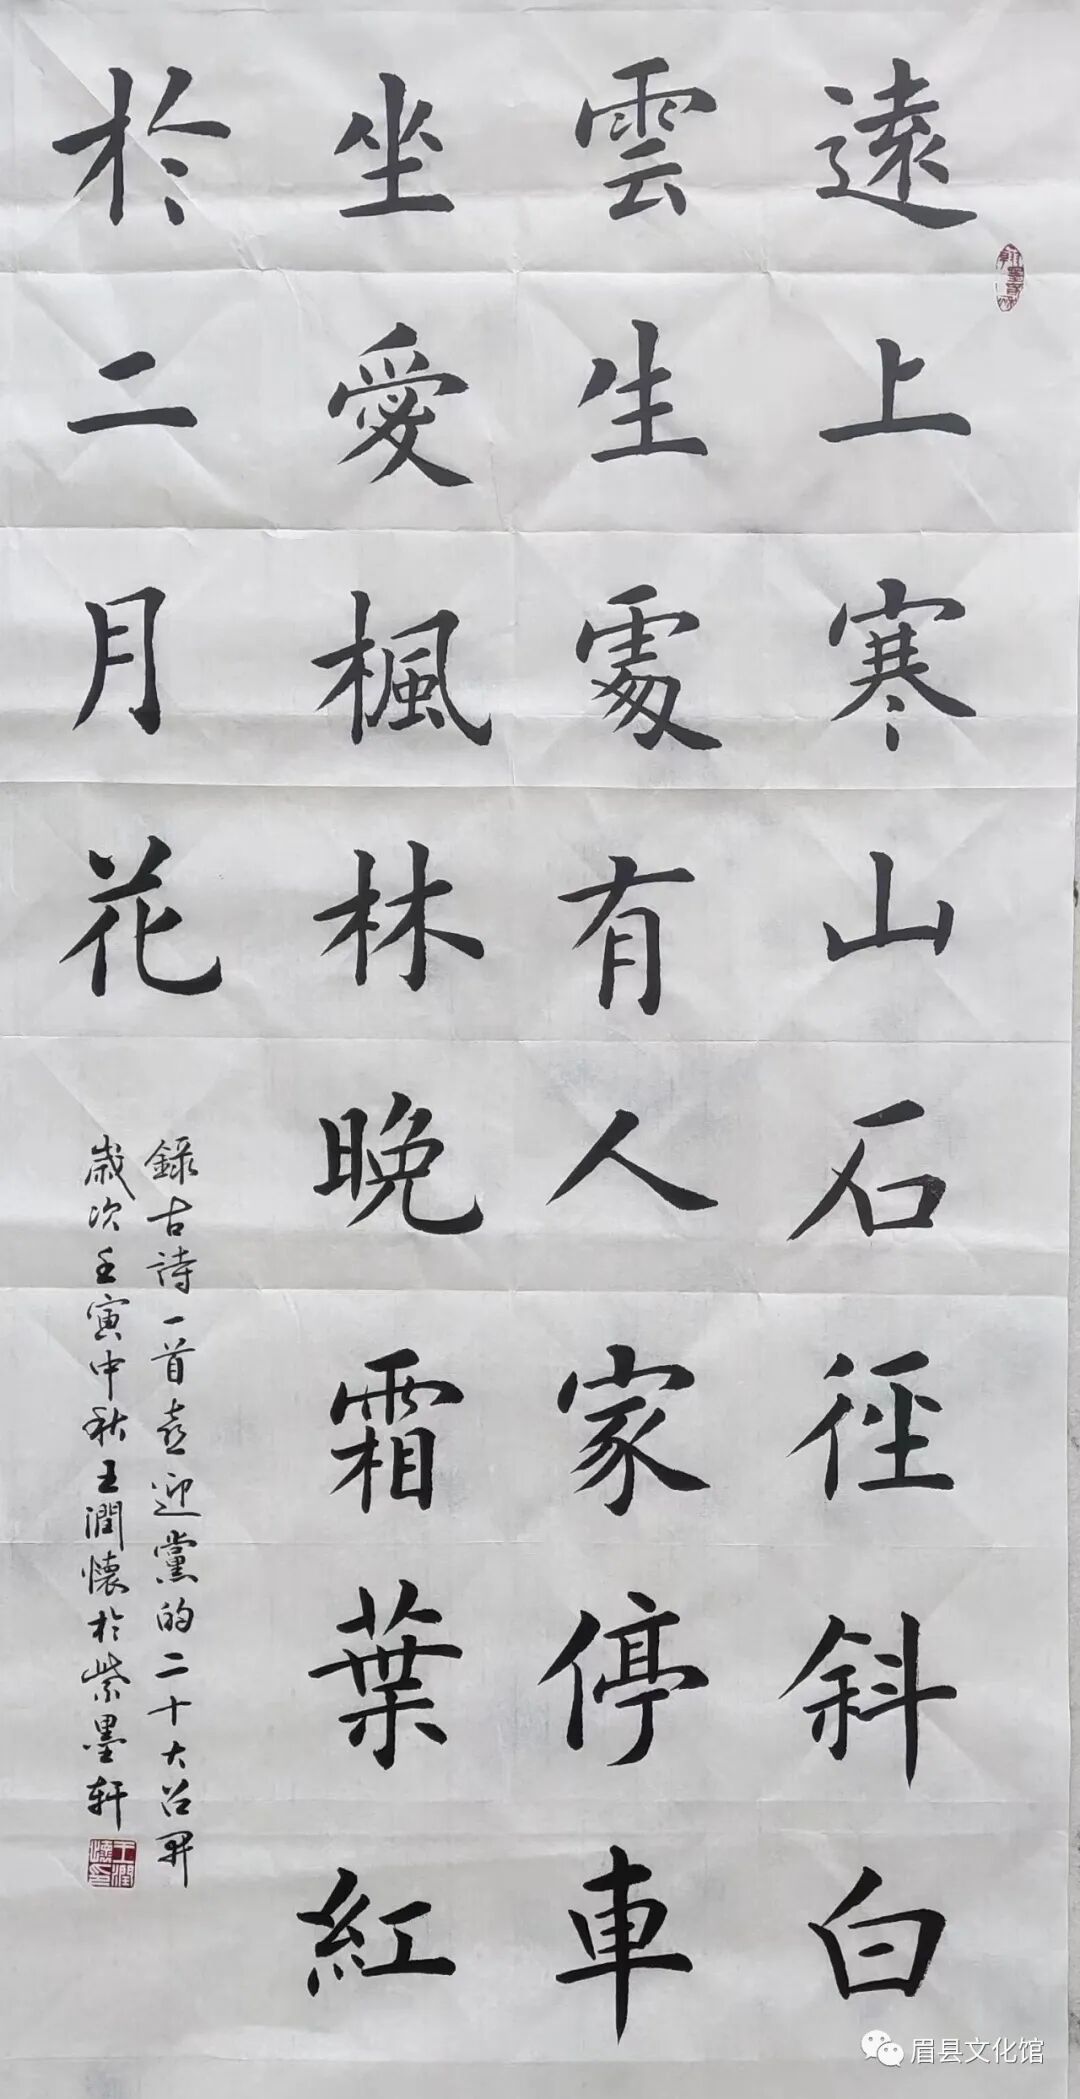 遠上寒山石徑斜白
雲生處有人家停車
坐愛楓林晚霜葉紅
於二月花
錄古詩一首喜迎黨的二十大召開
歲次壬寅中秋王潤懷於紫墨軒
王潤懷印
眉县文化馆